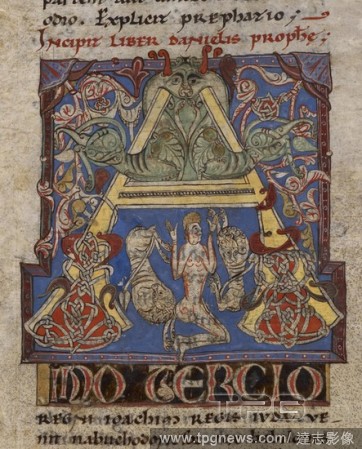 odio. Explicit prephatio;
INCIPIT LIBER DANIELIS PROPHE;
A
NNO TERCIO
REGNI IOACHIM REGIS IUDE VE
nit nabuchodo
www.tpgnews.com / 達志影像